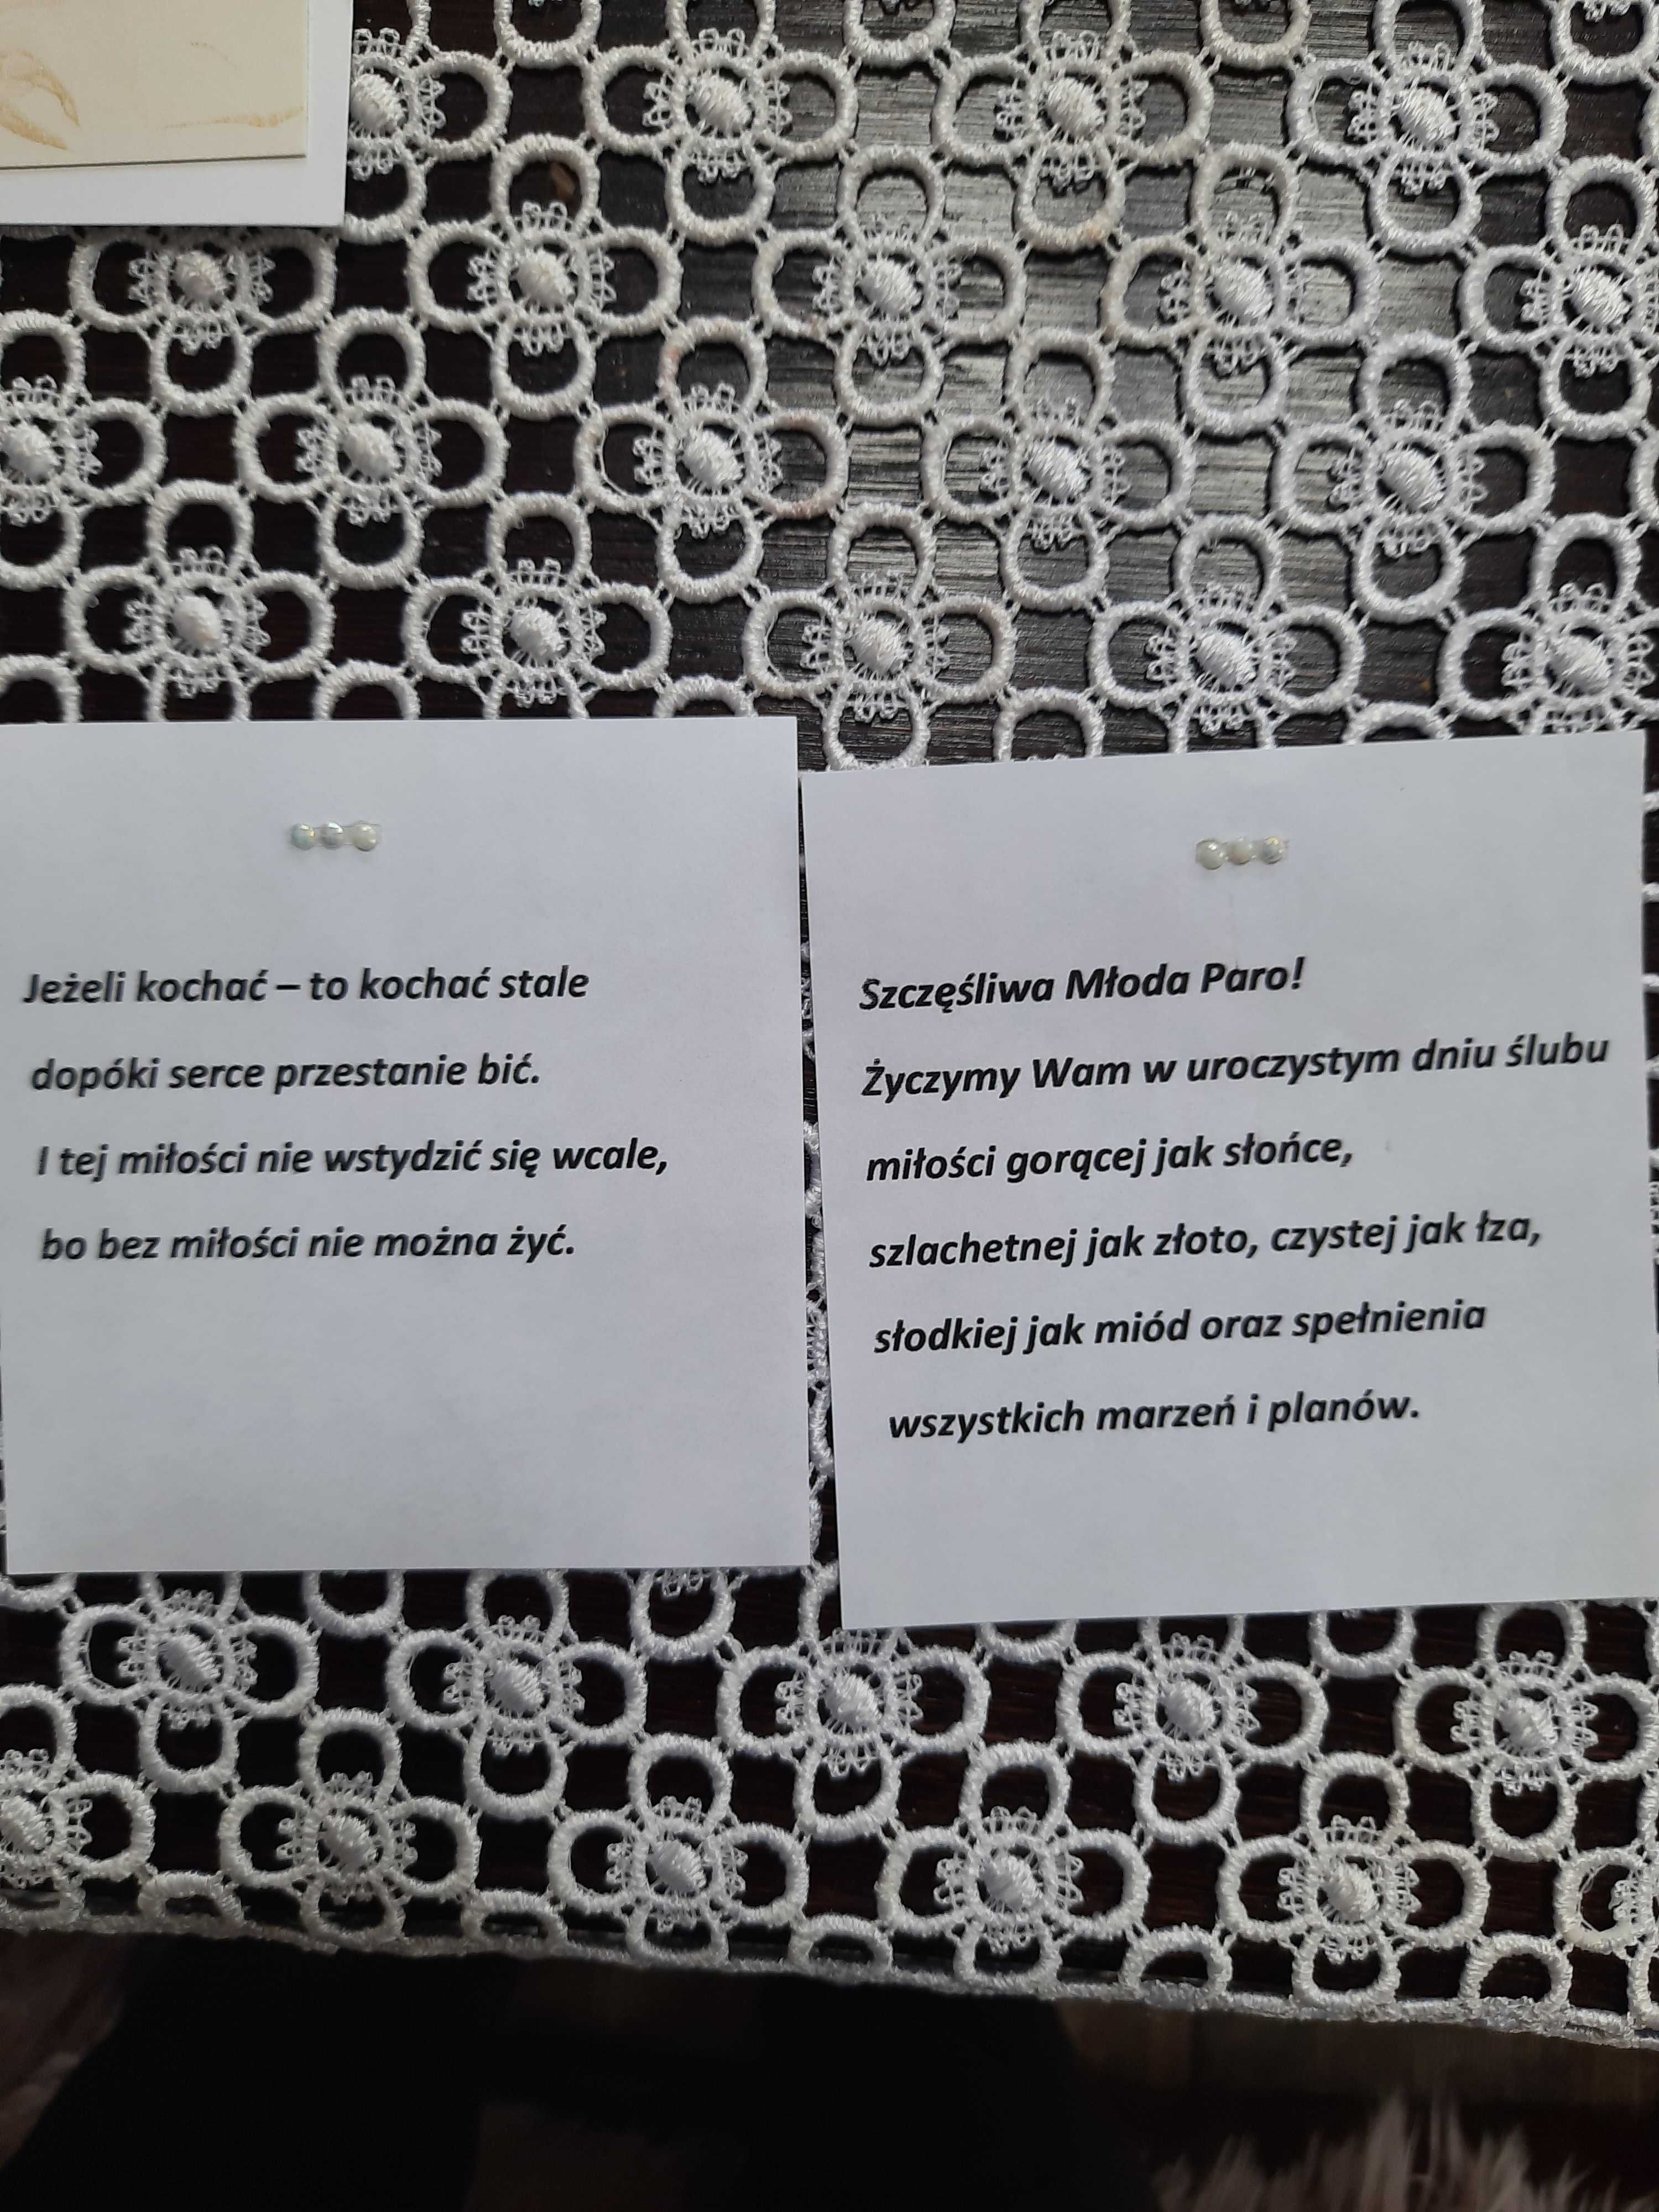 Jeżeli kochać – to kochać stale
dopóki serce przestanie bić.
I tej miłości nie wstydzić się wcale,
bo bez miłości nie można żyć.
Szczęśliwa Młoda Paro!
Życzymy Wam w uroczystym dniu ślubu
miłości gorącej jak słońce,
szlachetnej jak złoto, czystej jak łza,
słodkiej jak miód oraz spełnienia
wszystkich marzeń i planów.